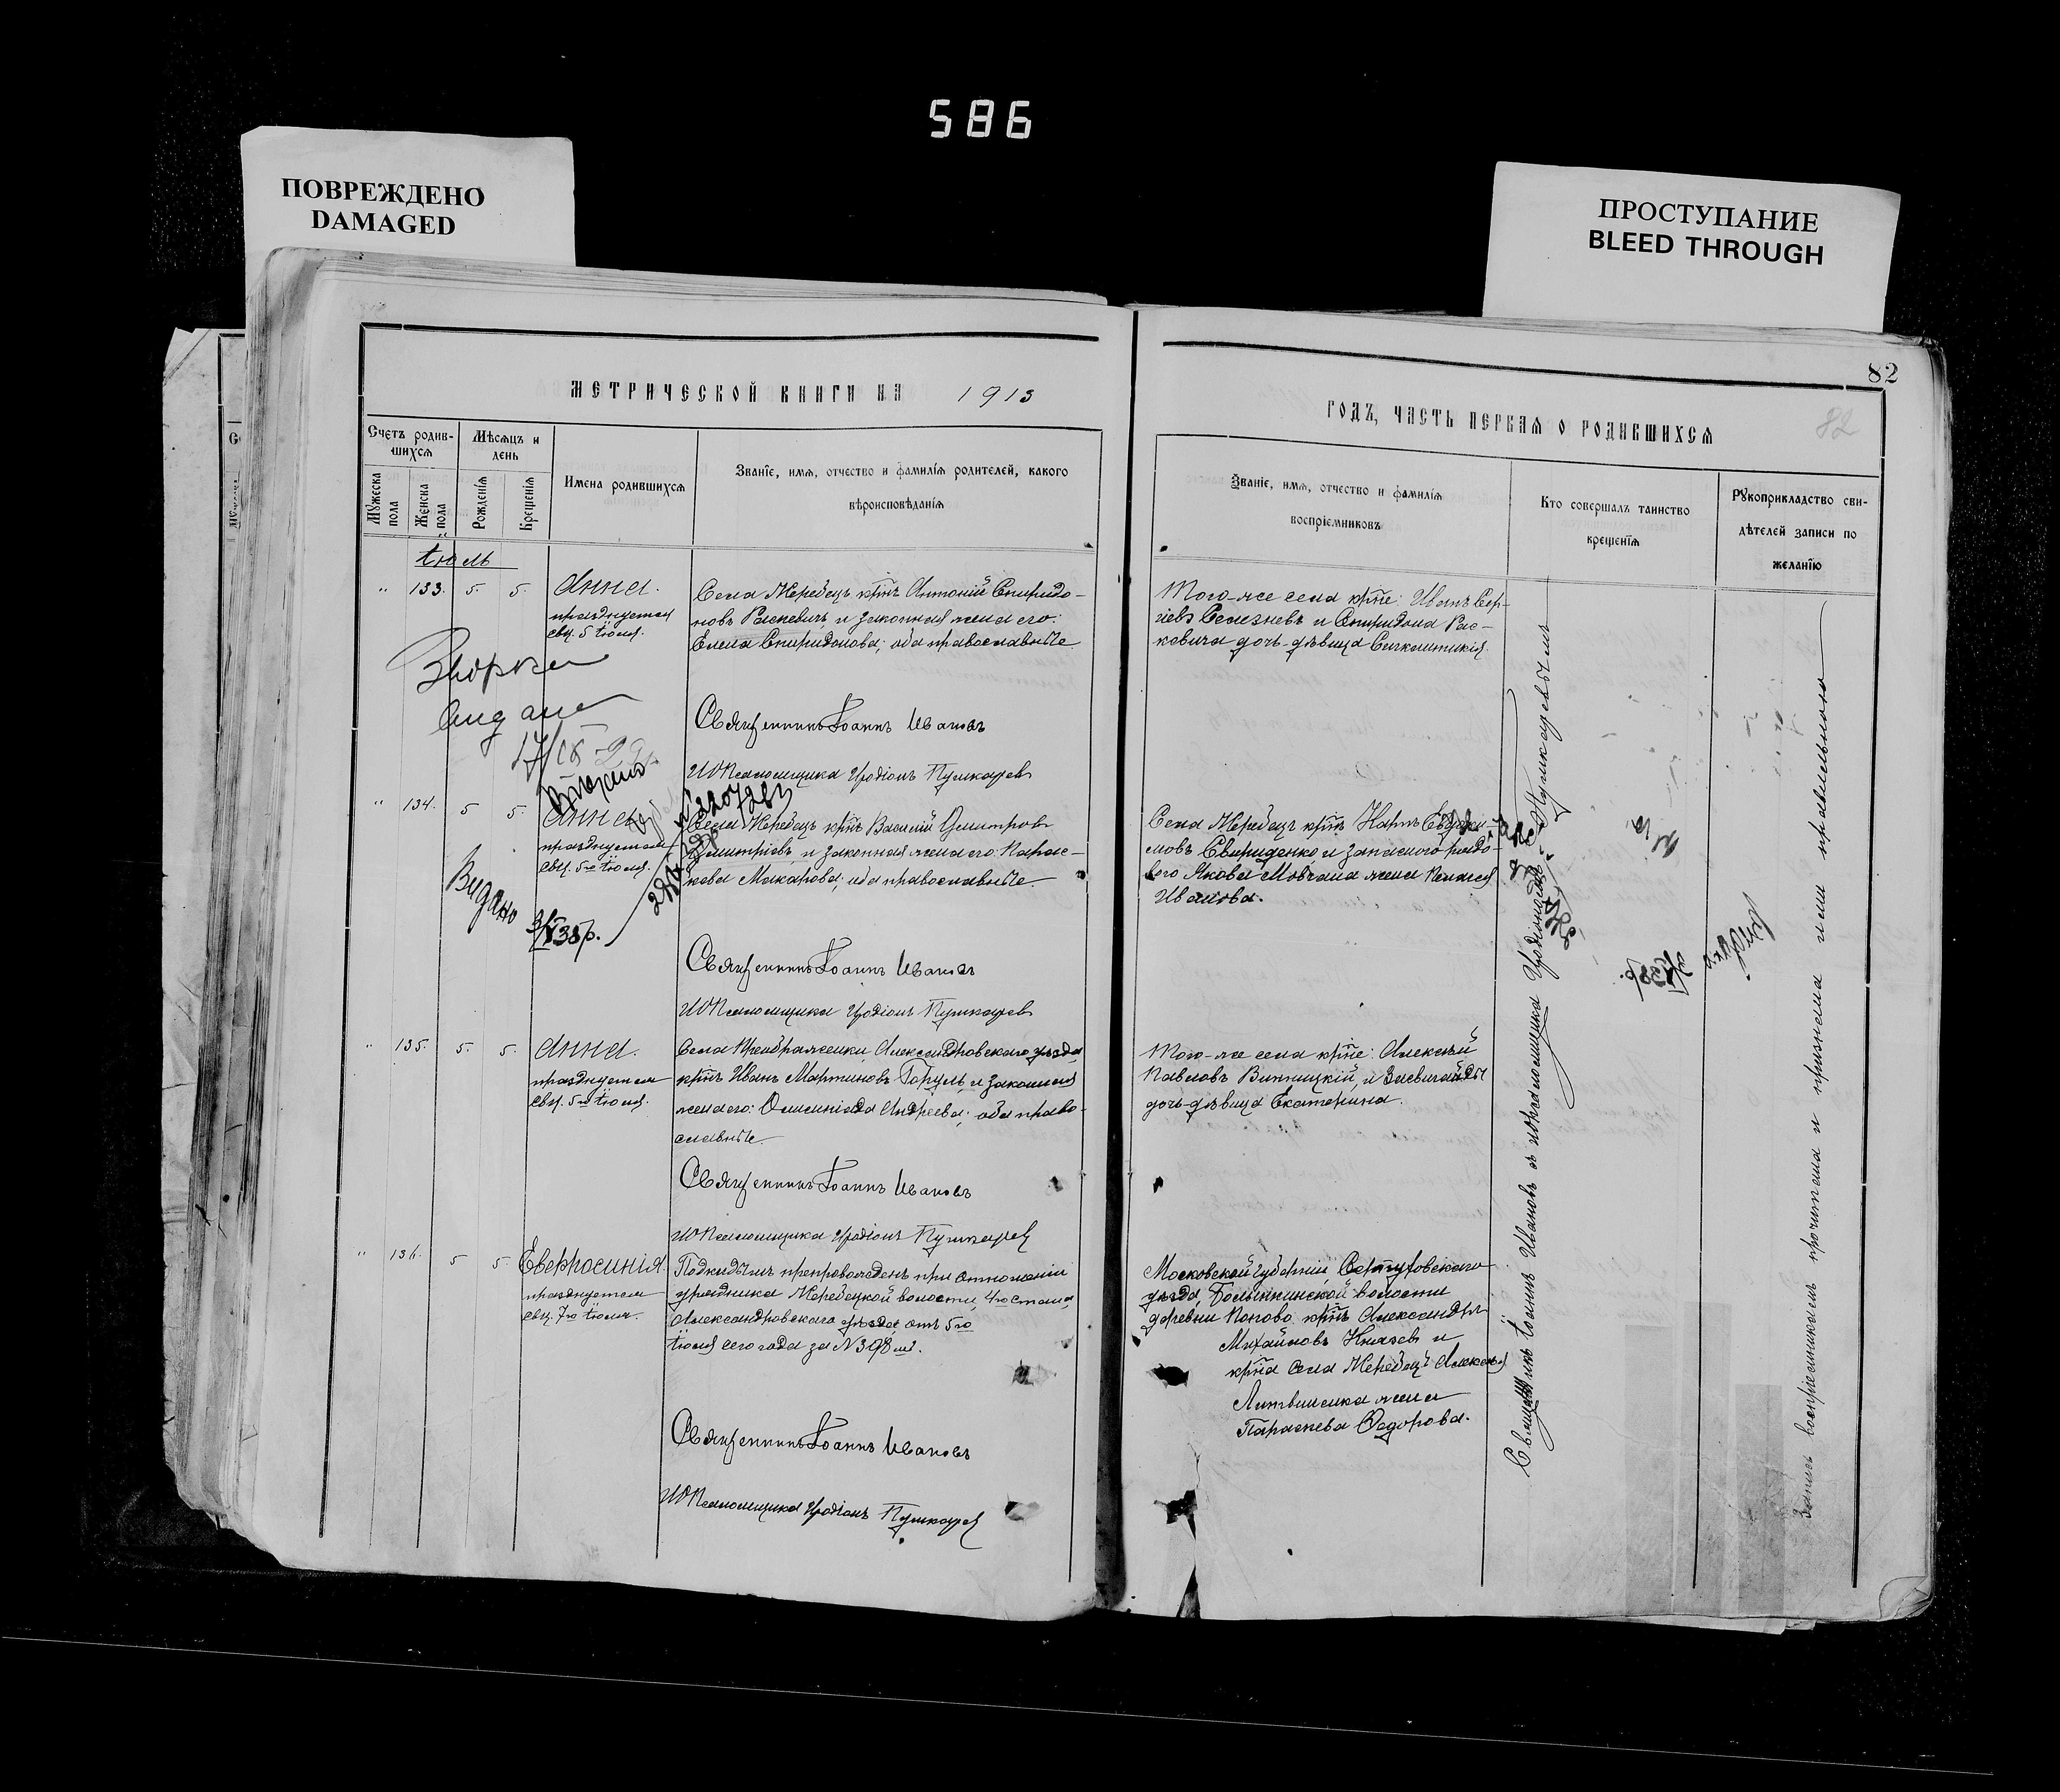 586
ПОВРЕЖДЕНО
DAMAGED
ПРОСТУПАНИЕ
BLEED THROUGH
МЕТРИЧЕСКОЙ КНИГИ НА 1913
Счетъ родив-
шихся
Мѣсяцъ и
день
Мужеска
пола
Женска
пола
Рожденія
Крещенія
Имена родившихся
Званіе, имя, отчество и фамилія родителей, какого
вѣроисповѣданія
Іюль
" 133. 5. 5. Анна.
празднуется
свц. 5 Іюля.
Села Жеребецъ крнъ Антоній Спиридо-
новъ Раскевичъ и законная жена его:
Елена Спиридонова; оба православные
Священникъ Іоаннъ Ивановъ
ИО Псаломщика Иродіонъ Пушкаревъ
" 134. 5 5. Анна
празднуется
свц. 5го Іюля.
Видано
Села Жеребецъ крнъ Василій Димитровъ
Димитріевъ и законная жена его: Парас-
кева Макарова; оба православные
Священникъ Іоаннъ Ивановъ
ИО Псаломщика Иродіонъ Пушкаревъ
" 135. 5. 5. Анна.
празднуется
свц. 5го Іюля.
Села Преображенки Александровскаго уѣзда
крнъ Иванъ Мартиновъ Горуль и законная
жена его: Олимпіада Андреева; оба право-
славные
Священникъ Іоаннъ Ивановъ
ИО Псаломщика Иродіонъ Пушкаревъ
" 136. 5 5 Евфросинія.
празднуется
свц. 7го Іюля.
Подкидышъ препровожденъ при отношеніи
урядника Жеребецкой волости, 4го стана,
Александровскаго уѣзда, отъ 5го
Іюля сего года за N 398
Священникъ Іоаннъ Ивановъ
ИО Псаломщика Иродіонъ Пушкаревъ
82
82
ГОДЪ, ЧАСТЬ ПЕРВАЯ О РОДИВШИХСЯ
Званіе, имя, отчество и фамилія
воспріемниковъ
Кто совершалъ таинство
крещенія
Рукоприкладство сви-
дѣтелей записи по
желанію
Того-же села крне: Иванъ Сер-
гіевъ Селезневъ и Спиридона Рас-
кевича дочь-дѣвица Синклитикія.
Села Жеребецъ крнъ Карпъ Евдоки-
мовъ Свириденко и запаснаго рядо-
вого Якова Мовчана жена
Иванова.
Того-же села крне: Алексѣй
Павловъ Винницкій, и
дочь-дѣвица Екатерина.
Московской губерніи, Серпуховскаго
уѣзда, волости
деревни Попово крнъ Александръ
Михайловъ Князевъ и
крна села Жеребецъ Алексѣя
Литвиненка жена
Параскева Ѳедорова.
Священникъ Іоаннъ Ивановъ съ ио псаломщика Иродіономъ Пушкаревымъ
Запись воспріемникомъ прочитана и признана ими правильною